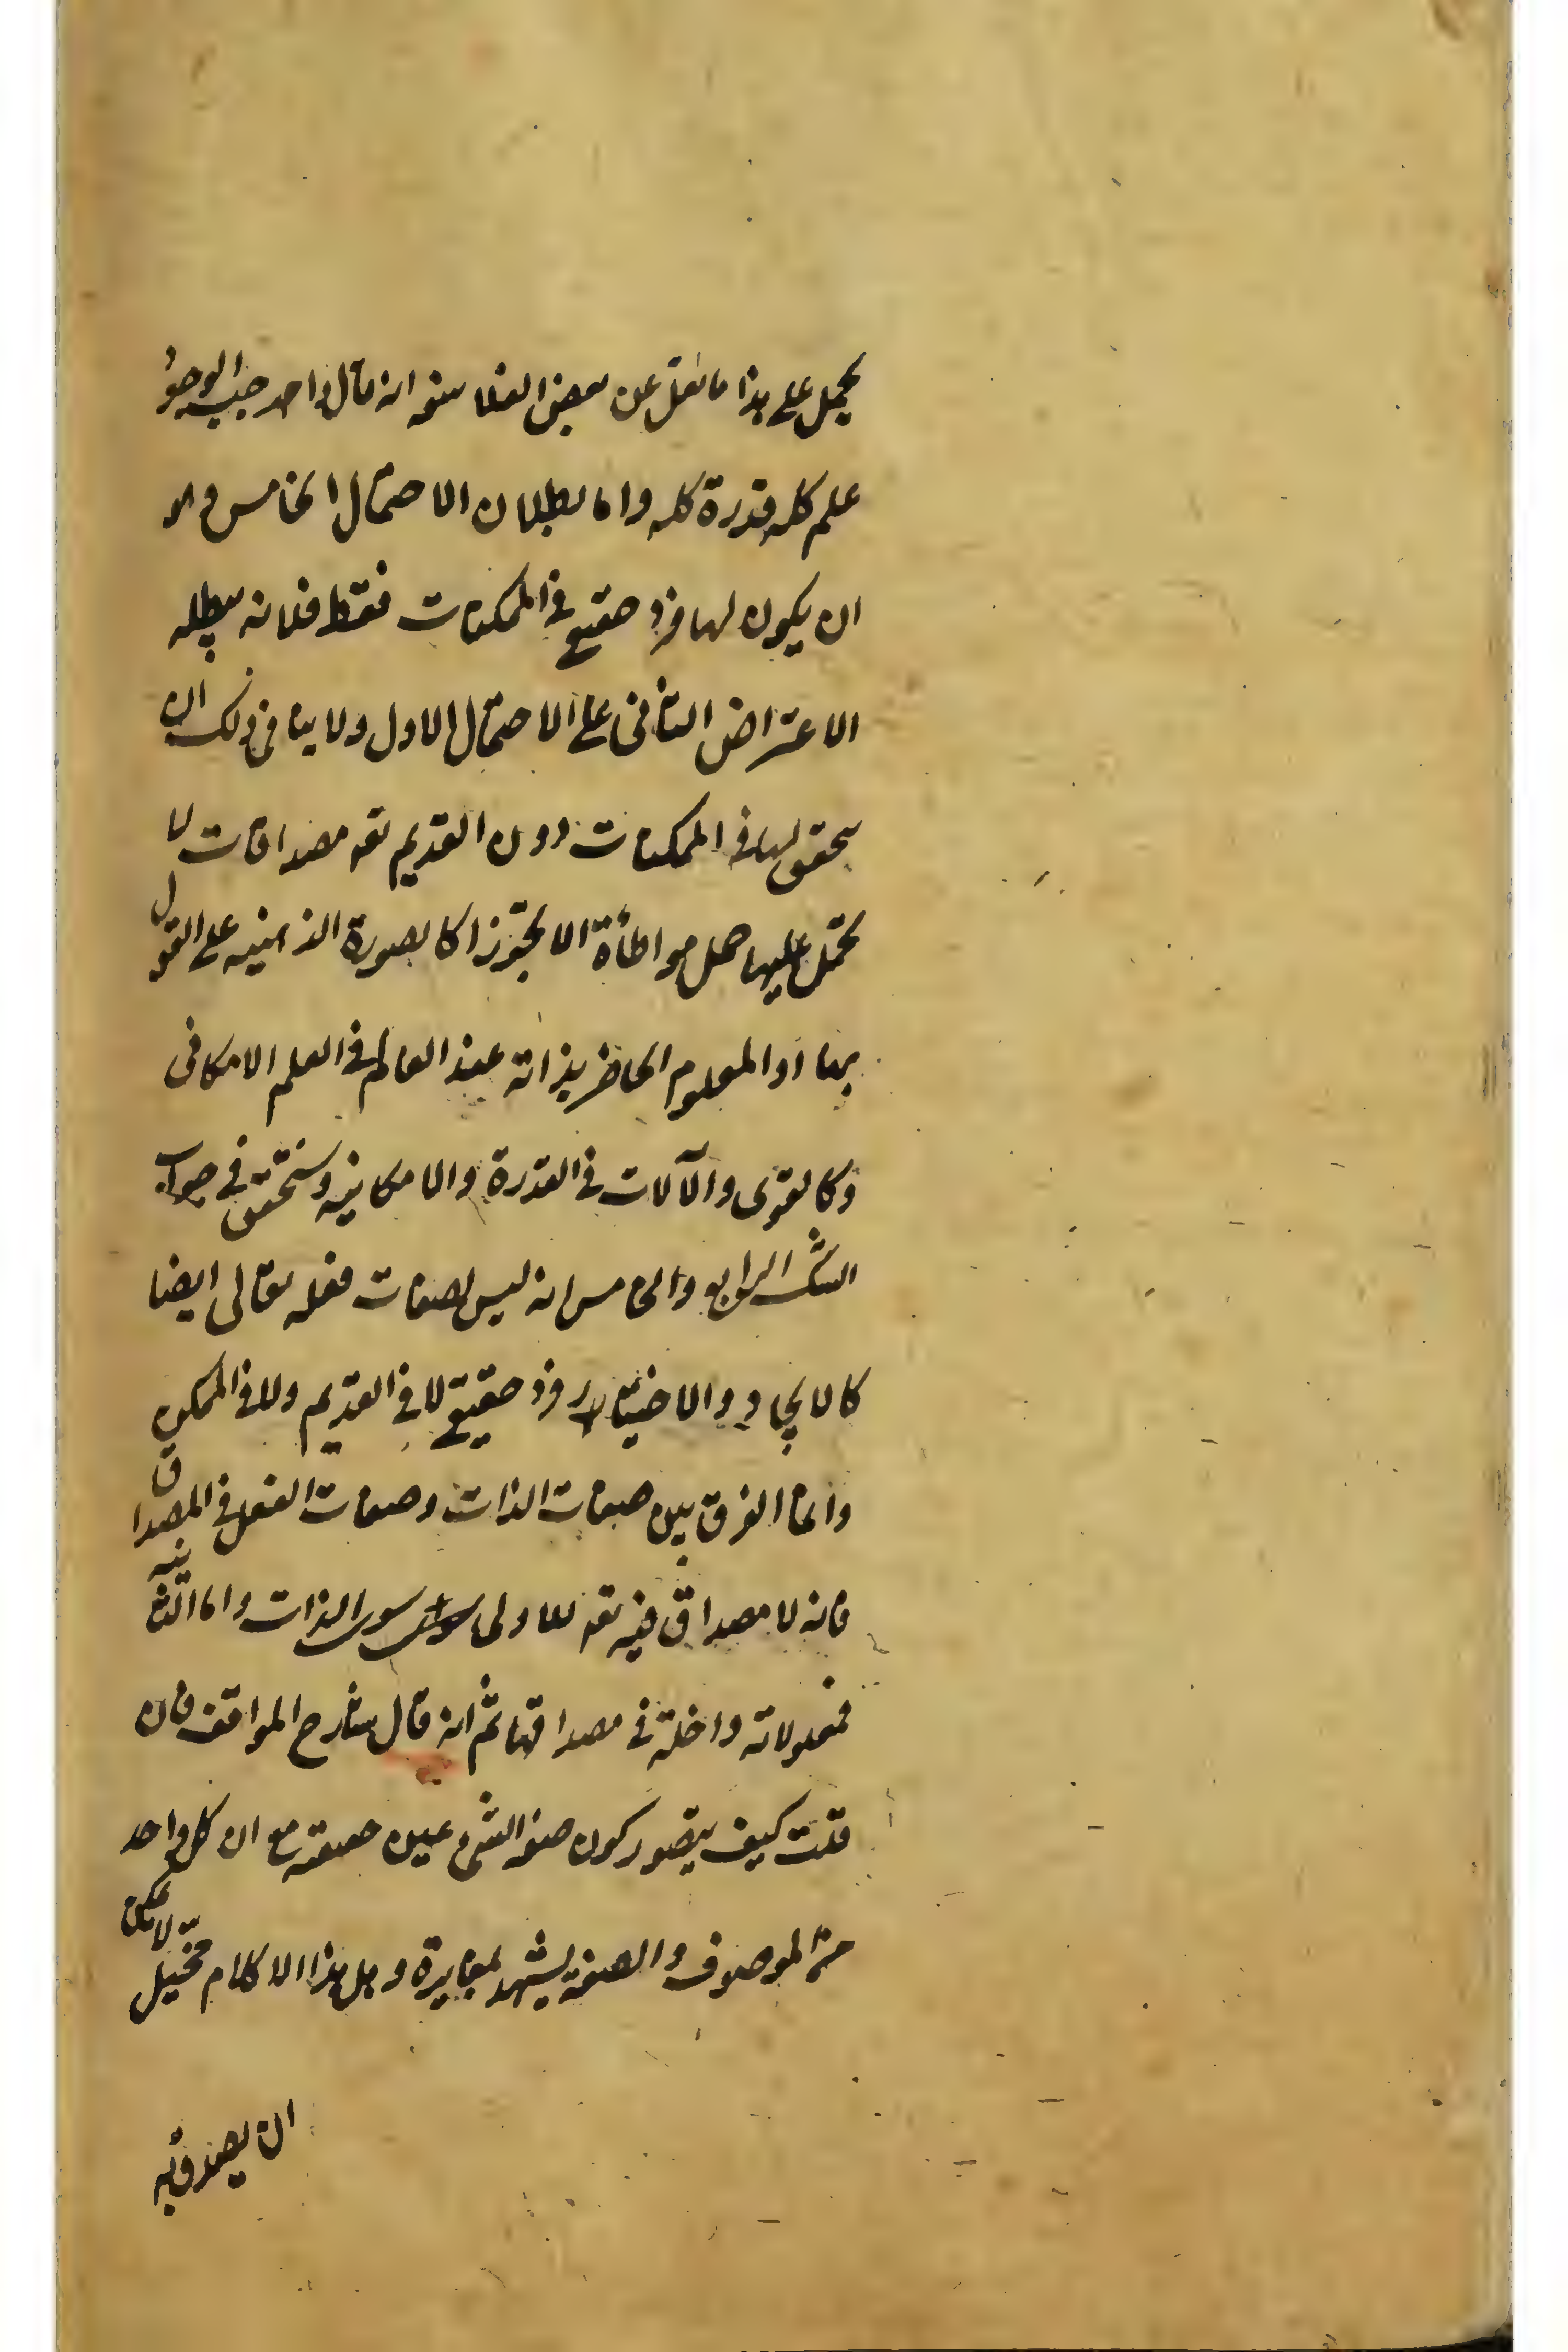 يحمل على هذا ما نقل عن بعض الفلاسفه انه قال واجب الوجود
علم كله قدرة كله واما بطلان الاحتمال الخامس وهو
ان يكون لها فرد حقيقي في الممكنات فقط فلانه يبطله
الاعتراض الثاني على الاحتمال الاول ولا ينافي ذلك ان
يتحقق لها في الممكنات دون القديم تعه مصداقات لا
تحمل عليها حمل مواطأة الا تجوزا كالصورة الذهنيه على القول
بها او المعلوم الحاضر بذاته عند العالم في العلم الامكاني
وكالقوى والآلات في القدرة والامكانيه وسنحقق في جواب
الشك الرابع والخامس انه ليس لصفات فعله تعالى ايضا
كالايجاد والاختيار فرد حقيقي لا في القديم ولا في الممكن
وانما الفرق بين صفات الذات وصفات الفعل في المصداق
فانه لا مصداق فيه تعه للاولى سوى الذات واما الثانيه
فمعلولاته داخلة في مصداقها ثم انه قال شارح المواقف فان
قلت كيف يتصور كون صفه الشئ عين حقيقته مع ان كل واحد
من الموصوف والصفه يشهد لمغايرة وهل هذا الا كلام مخيل لا يمكن
ان يصدق به